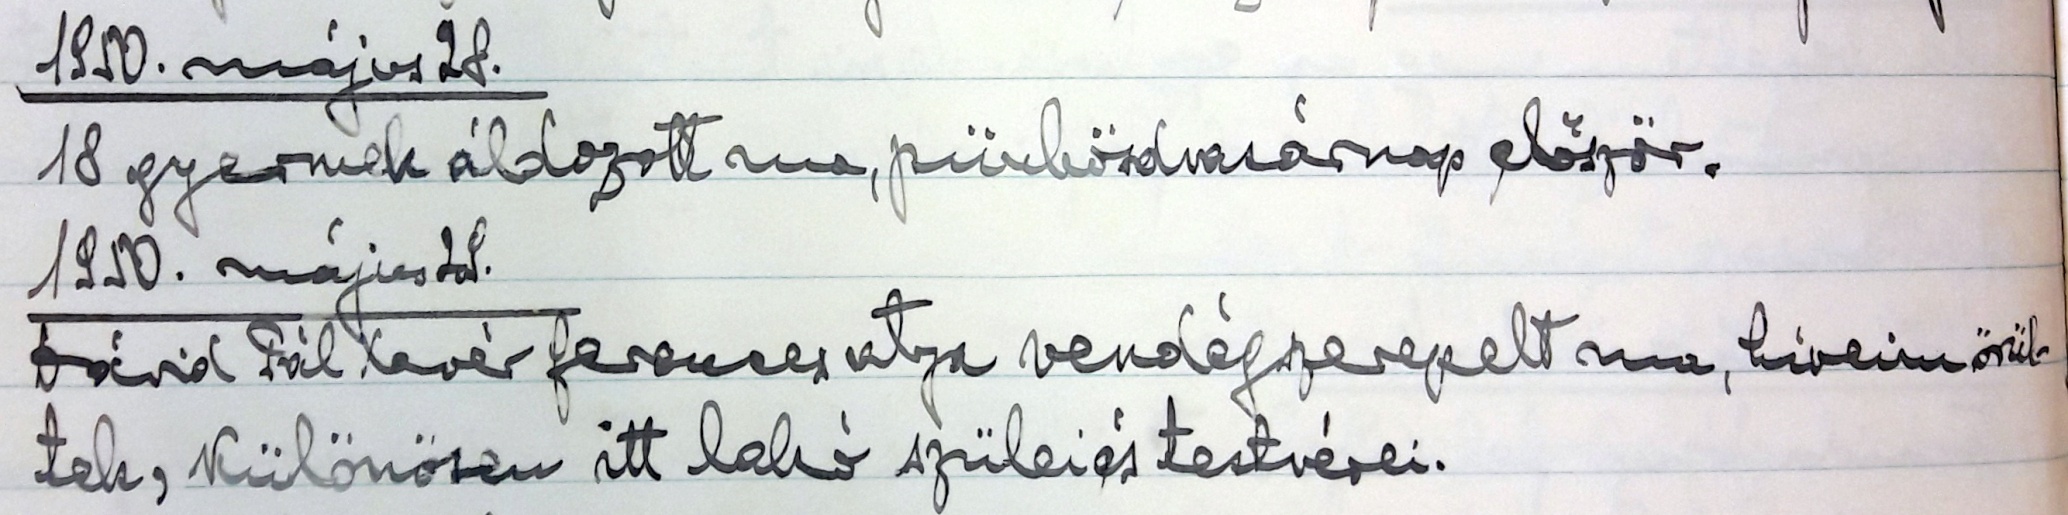 1950. május 28.
18 gyermek áldozott ma, pünkösdvasárnap először.
1950. május 28.
Dávid Pál Xavér ferences atya vendégszerepelt ma, híveim örül-
tek, különösen itt lakó szülei és testvérei.